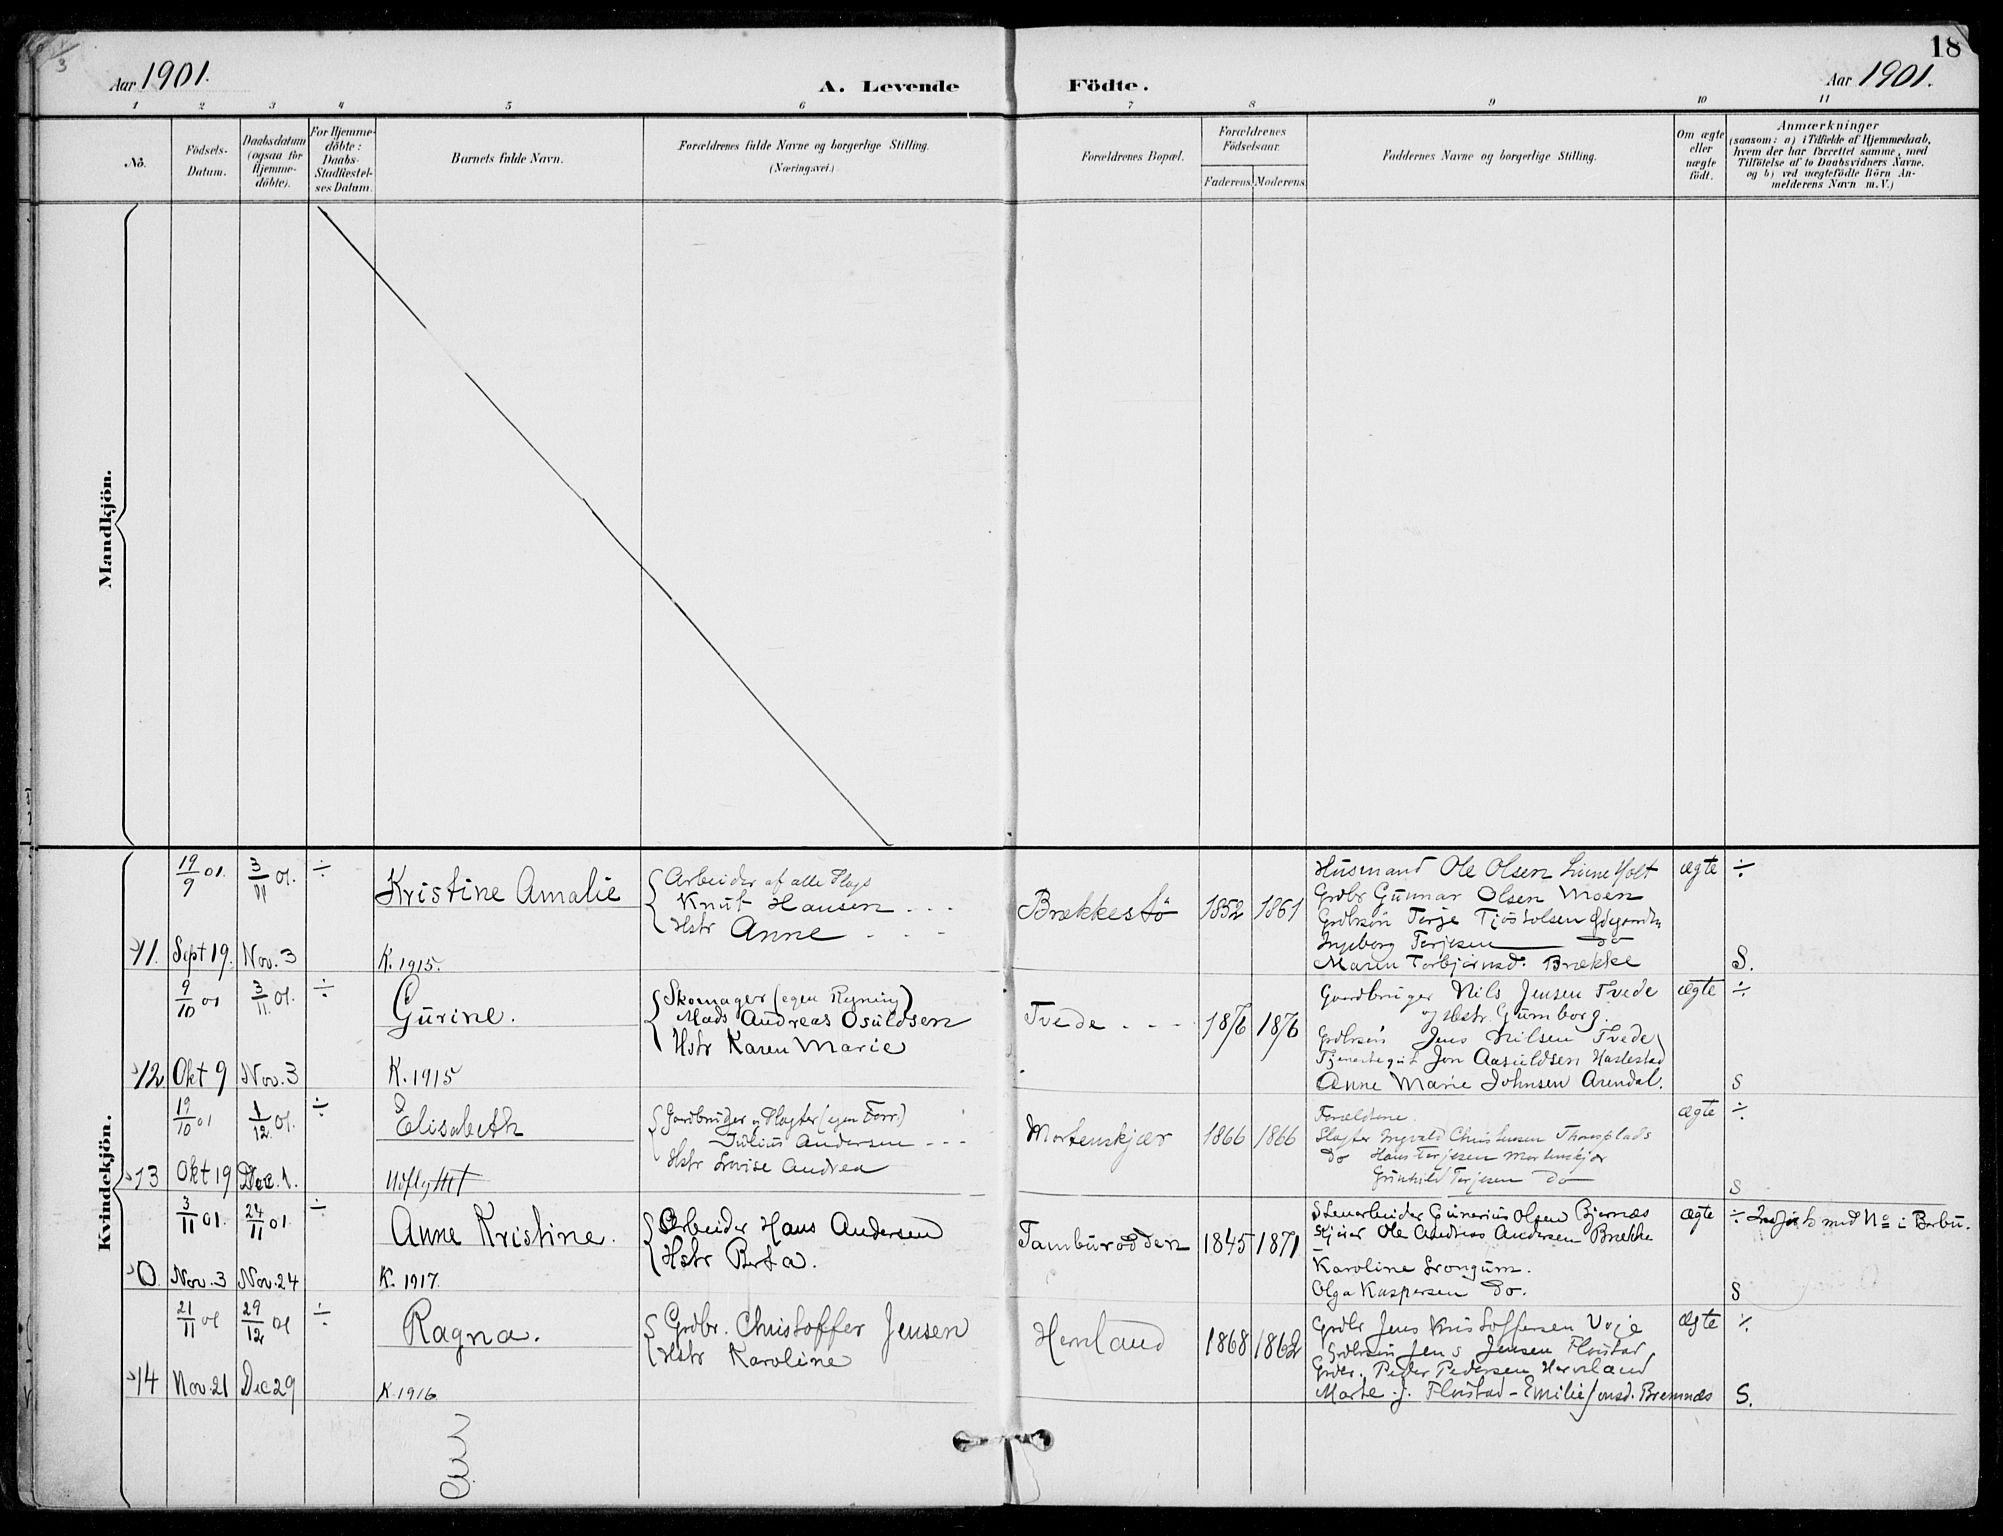 18
Aar 1901.
A. Levende Födte.
Aar 1901.
1 2 3 4 5 6 7 8 9 10 11
No.
Födsels-Datum.
Daabsdatum (ogsaa for Hjemme-döbte).
For Hjemme-döbte: Daabs-Stadfæstel-ses Datum.
Barnets fulde Navn.
Forældrenes fulde Navne og borgerlige Stilling.
(Næringsvei.)
Forældrenes Bopæl.
Forældrenes Födselsaar.
Faderens. Moderens.
Faddernes Navne og borgerlige Stilling.
Om ægte eller uægte födt.
Anmærkninger
(saasom: a) i Tilfælde af Hjemmedaab,
hvem der har forrettet samme, med
Tilföielse af to Daabsvidners Navne,
og b) ved uægtefödte Börn An-
melderens Navn m. V.)
Mandkjön.
Kvindekjön.
19/9 01. 3/11 01. ÷
Kristine Amalie
Arbeider af alle Slags
Knut Hansen
Hstr Anne
Brækkestö 1852 1861
Husmand Ole Olsen
Grdbr Gunnar Olsen Moen
Grdbrsön Terje Tjöstolsen
Ingeborg Terjesen do
Maren Torbjörnsd. Brække
ægte ÷
11. Sept 19. Nov. 3
K. 1915.
S.
9/10 01 3/11 01. ÷
Gurine.
Skomager (egen Regning)
Mads Andreas Osuldsen
Hstr Karen Marie
Tvede 1876 1876
Gaardbruger Nils Jensen Tvede
og Hstr. Gumborg.
Grdbrsön Jens Nilsen Tvede
Tjenestegut Jon Aasuldsen
Anne Marie Johnsen Arendal.
ægte ÷
12 Okt 9 Nov. 3
K. 1915
S
19/10 01 1/12 01. ÷
Elisabeth
Gardbruger og Slagter (egen Forr.)
Julius Andersen
Hstr Lovise Andrea
Mortenskjær 1866 1866
Forældrene
Slagter Ingvald Christensen
do Hans Terjesen Mortenskjær
Gunhild Terjesen do
ægte ÷
13 Okt 19 Dec. 1.
Udflyttet
S
3/11 01. 24/11 01. ÷
Anne Kristine.
Arbeider Hans Andersen
Hstr Berta.
Tamburodden 1845 1871
Stenarbeider Gunerius Olsen Bjornæs
Ole Andreas Andersen Brække
Karoline Songum.
Olga Kaspersen do.
ægte ÷ med No i Barbu.
0. Nov. 3 Nov. 24
K. 1917.
S
21/11 01 29/12 01 ÷
Ragna.
Grdbr. Christoffer Jensen
Hstr Karoline
Hernland 1868 1862
Grdbr Jens Kristoffersen Voje
Grdbrsön Jens Jensen Flöistad
Grdbr. Peder Pedersen Hernland
Marte J. Flöistad - Emilie Jonsd. Bremnæs
ægte ÷
14 Nov. 21 Dec 29
K. 1916
S.